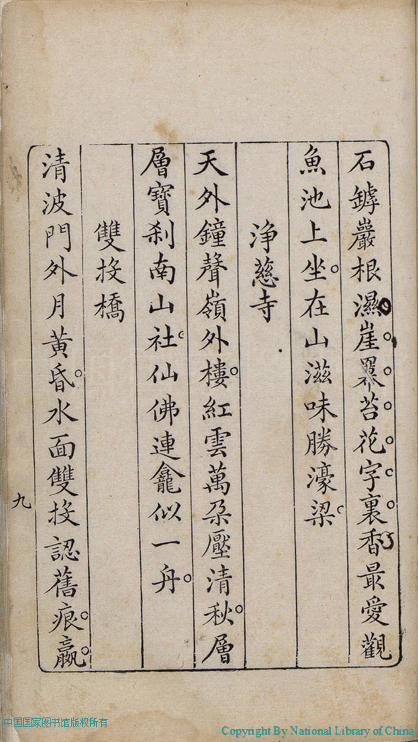 石罅巖根濕崖畧苔花字裏香最愛觀
魚池上坐在山滋味勝濠梁
淨慈寺
天外鐘聲嶺外樓紅雲萬朶壓清秋層
層寶刹南山社仙佛連龕似一舟
雙投橋
清波門外月黃昏水面雙投認舊痕嬴
九
中国国家图书馆版权所有
Copyright By National Library of China